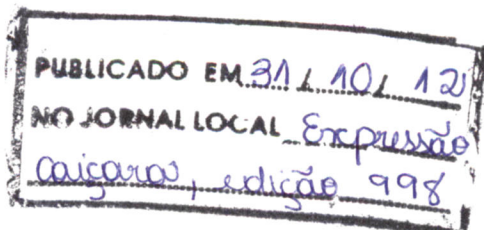 PUBLICADO EM 31 / 10 / 12
NO JORNAL LOCAL Expressão
Caiçara, edição 998